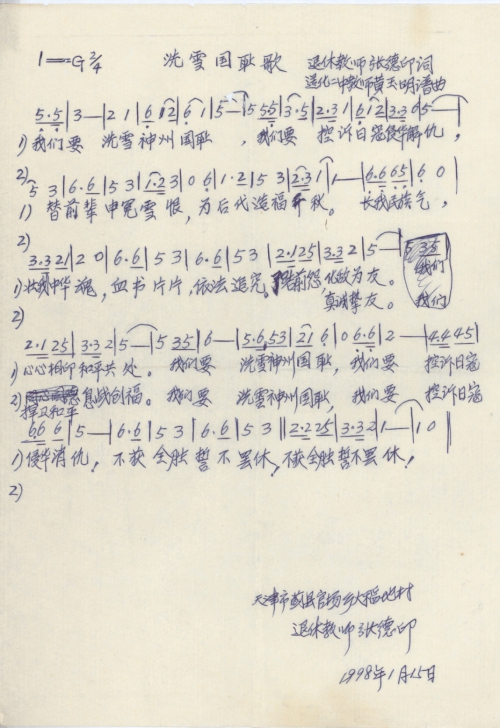 1=G 2/4 洗雪国耻歌 退休教师张德印词
退化二中教师黄玉明谱曲
5.5|3—|2 1|6 12|6 1|5—|5 55|3.5|2.3 1|6 1 2|3.3 6|5—|
1)我们要 洗雪神州国耻,我们要 控诉日寇侵华解仇,
2)
5 3|6.6|5 3|1.2 3|0 6|1.2|5 3|2.3 1|1—|6.6 6 5|6 0|
1)替前辈申冤雪恨,为后代造福千秋。长我民族气,
2)
3.3 2 1|2 0|6.6|5 3|6.6|5 3|2.1 2 5|3.3 2|5—|5 3 5|
1)壮我中华魂,血书片片,依法追究。 前怨化敌为友。 我们
真诚挚友。 我们
2)
2.1 2 5|3.3 2|5—|5 3 5|6—|5.6 5 3|2 1 6|0 6.6|2—|4.4 4 5|
1)心心相印和平共处。我们要 洗雪神州国耻,我们要 控诉日寇
2) 息战创福。我们要 洗雪神州国耻,我们要 控诉日寇
捍卫和平
6 6 6|5—|6.6|5 3|6.6|5 3|2.2 2 5|3.3 2|1—|1 0‖
1)侵华消仇,不获全胜誓不罢休,不获全胜誓不罢休,
2)
天津市蓟县官场乡大福地村
退休教师张德印
1998年1月15日